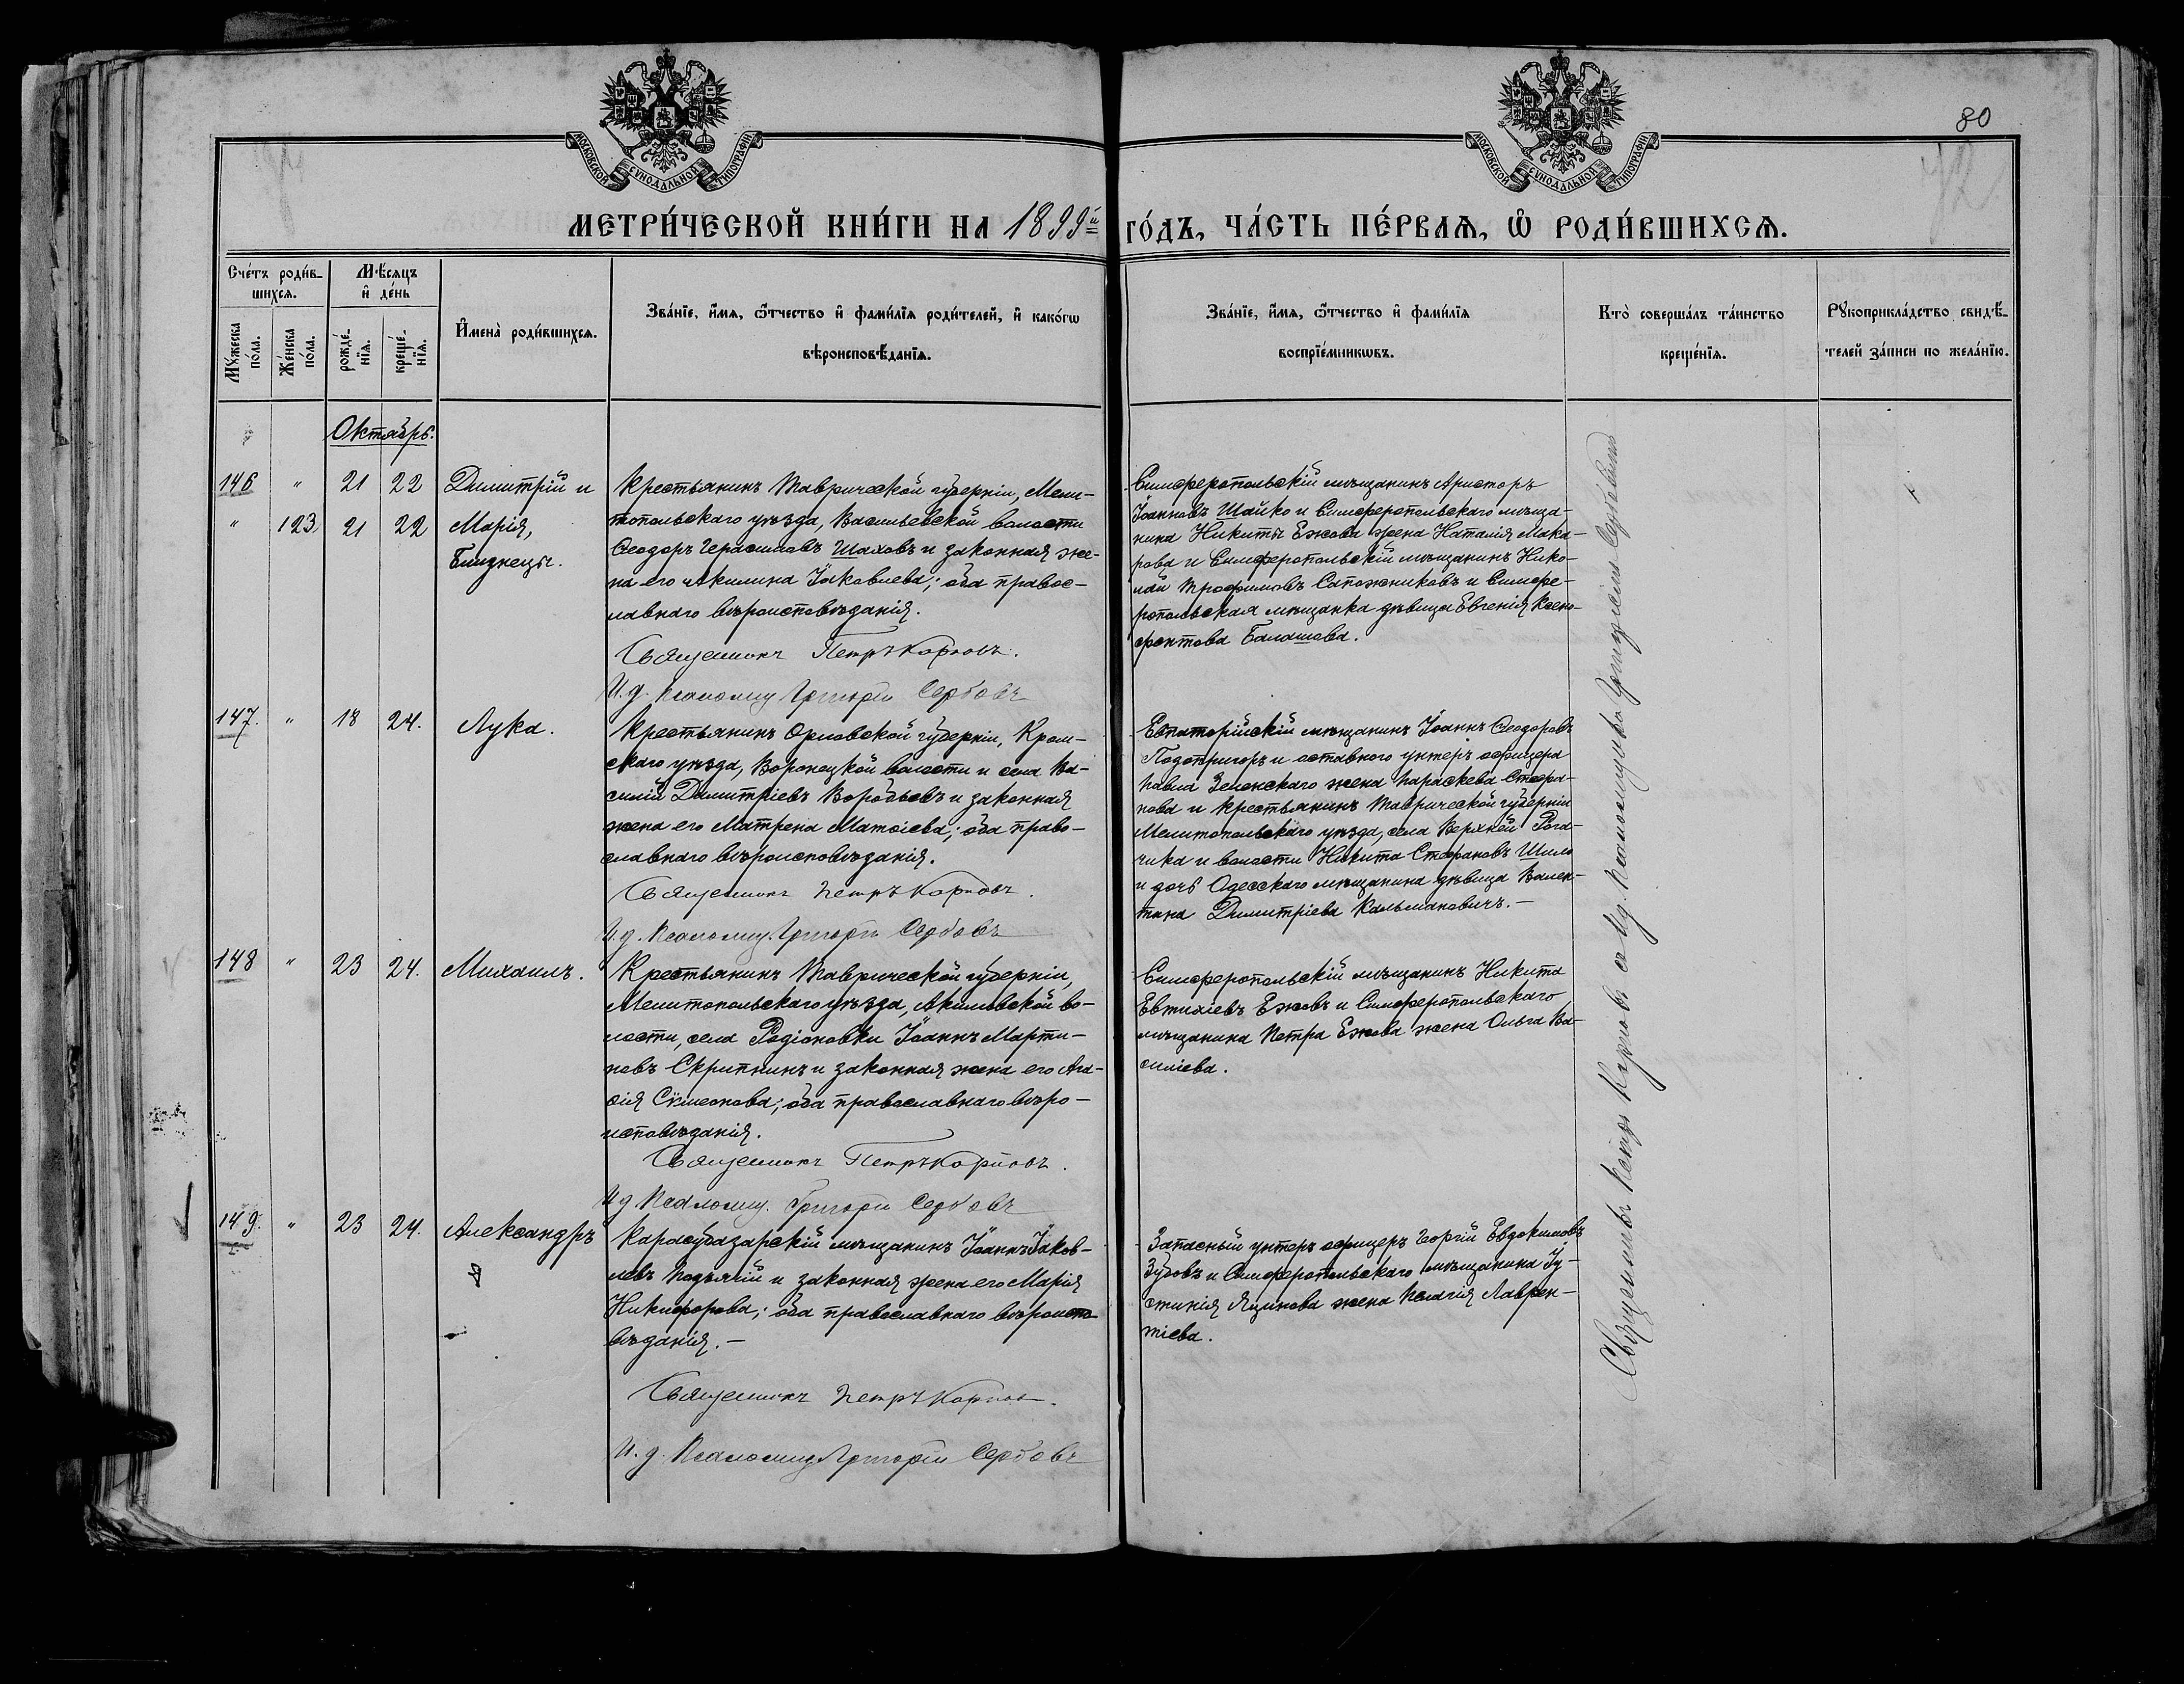 80
42
МОСКОВСКОЙ СѴНОДАЛЬНОЙ ТИПОГРАФІИ
МОСКОВСКОЙ СѴНОДАЛЬНОЙ ТИПОГРАФІИ
МЕТРИ́ЧЕСКОЙ КНИ́ГИ НА 1899й ГО́ДЪ, ЧА́СТЬ ПЕ́РВАѦ, Ѡ҆ РОДИ́ВШИХСѦ.
Сче́тъ роди́в-
шихсѧ.
Мѣ́сяцъ
и҆ де́нь
Мꙋ́жеска
по́ла.
Же́нска
по́ла.
рожде́-
нїѧ.
креще́-
нїѧ.
И҆мена̀ роди́вшихсѧ.
Зва́нїе, и҆́мѧ, ѻ҆́тчество и҆ фами́лїѧ роди́телей, и҆ како́гѡ
вѣроисповѣ́данїѧ.
Зва́нїе, и҆́мѧ, ѻ҆́тчество и҆ фами́лїѧ
воспрїе́мникѡвъ.
Кто̀ соверша́лъ та́инство
креще́нїѧ.
Рꙋкоприкла́дство свидѣ́-
телей за́писи по жела́нїю.
Октябрь.
146 " 21 22 Димитрій и
" 123 21 22 Марія,
Близнецы.
Крестьянинъ Таврической губерніи, Мели-
топольскаго уѣзда, Васильевской волости
Ѳеодоръ Герасимовъ Шаховъ и законная же-
на его Акилина Іаковлева; оба правос-
лавнаго вѣроисповѣданія.
Священникъ Петръ Карповъ.
И. д. Псаломщ. Григорій Сербовъ
Симферопольскій мѣщанинъ Аристоръ
Іоанновъ Шайко и Симферопольскаго мѣща-
нина Никиты Ежова жена Наталія Мака-
рова и Симферопольскій мѣщанинъ Нико-
лай Трофимовъ Сапожниковъ и Симфе-
ропольская мѣщанка дѣвица Евгенія Ксено-
фонтова Балашова.
147. " 18 24. Лука.
Крестьянинъ Орловской губерніи, Кром-
скаго уѣзда, Воронецкой волости и села Ва-
силій Димитріевъ Воробьевъ и законная
жена его Матрена Матѳіева; оба право-
славнаго вѣроисповѣданія.
Священникъ Петръ Карповъ.
И. д. Псаломщ. Григорій Сербовъ
Евпаторійскій мѣщанинъ Іоаннъ Ѳеодоровъ
Подопригоръ и оставного унтеръ офицера
Павла Зелонскаго жена Параскева Стефа-
нова и крестьянинъ Таврической губерніи
Мелитопольскаго уѣзда, села Верхней Рога-
чика и волости Никита Стефановъ Шило
и дочь Одесскаго мѣщанина дѣвица Вален-
тина Димитріева Кальманович.—
148 " 23 24. Михаилъ.
Крестьянинъ Таврической губерніи,
Мелитопольскаго уѣзда, Акимовской во-
лости, села Родіоновки Іоаннъ Марти-
новъ Скрипнинъ и законная жена его Ага-
ѳія Сѵмеонова; оба православнаго вѣро-
исповѣданія.
Священникъ Петръ Карповъ.
И. д. Псаломщ. Григорій Сербовъ
Симферопольскій мѣщанинъ Никита
Евтихіевъ Ежовъ и Симферопольскаго
мѣщанина Петра Ежова жена Ольга Ва-
силіева.
149. " 23 24. Александръ
Карасубазарскій мѣщанинъ Іоаннъ Іаков-
левъ Подъячій и законная жена его Марія
Никифорова; оба православнаго вѣроиспо-
вѣданія.—
Священникъ Петръ Карповъ.
И. д. Псаломщ. Григорій Сербовъ
Запасный унтеръ офицеръ Георгій Евдокимовъ
Зубовъ и Симферопольскаго мѣщанина Іу-
стинія Яцинова жена Пелагія Лаврен-
тіева.
Священникъ Петръ Карповъ съ И. д. Псаломщика Григоріемъ Сербовымъ